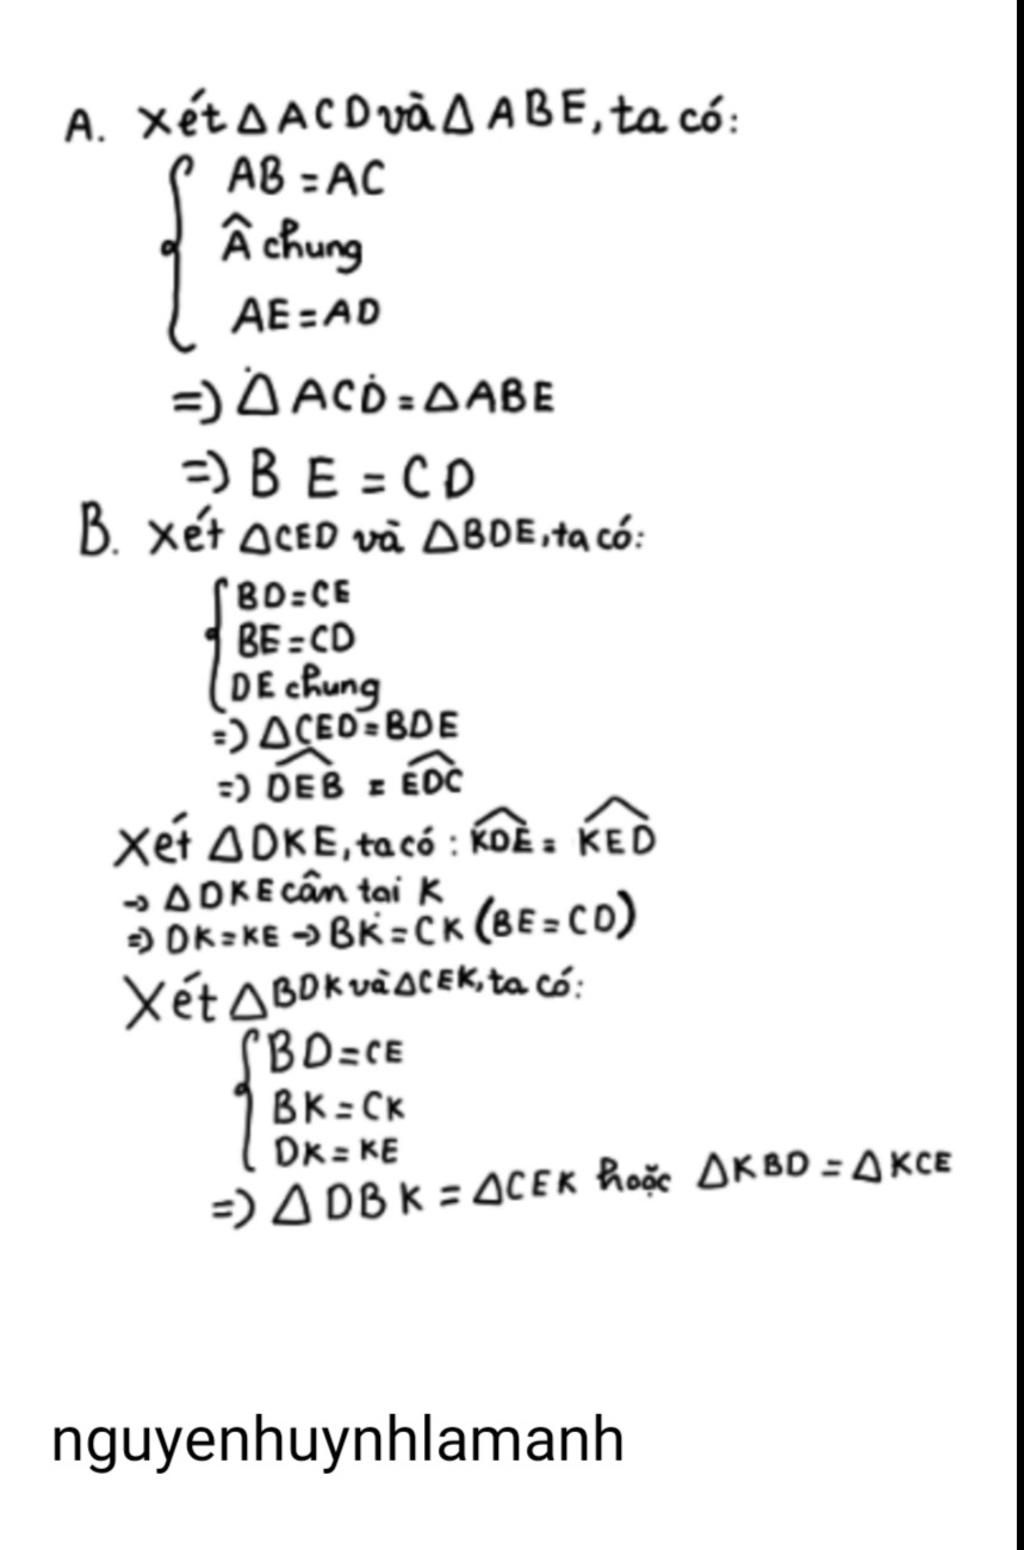 A. Xét △ACD và △ABE, ta có:
AB = AC
Â chung
AE = AD
=> △ACD = △ABE
=> BE = CD
B. Xét △CED và △BDE, ta có:
BD = CE
BE = CD
DE chung
=> △CED = BDE
=> D͡EB = E͡DC
Xét △DKE, ta có : K͡DE = K͡ED
→ △DKE cân tai K
=> DK = KE → BK = CK (BE = CD)
Xét △BDK và △CEK, ta có:
BD = CE
BK = CK
DK = KE
=> △DBK = △CEK hoặc △KBD = △KCE
nguyenhuynhlamanh